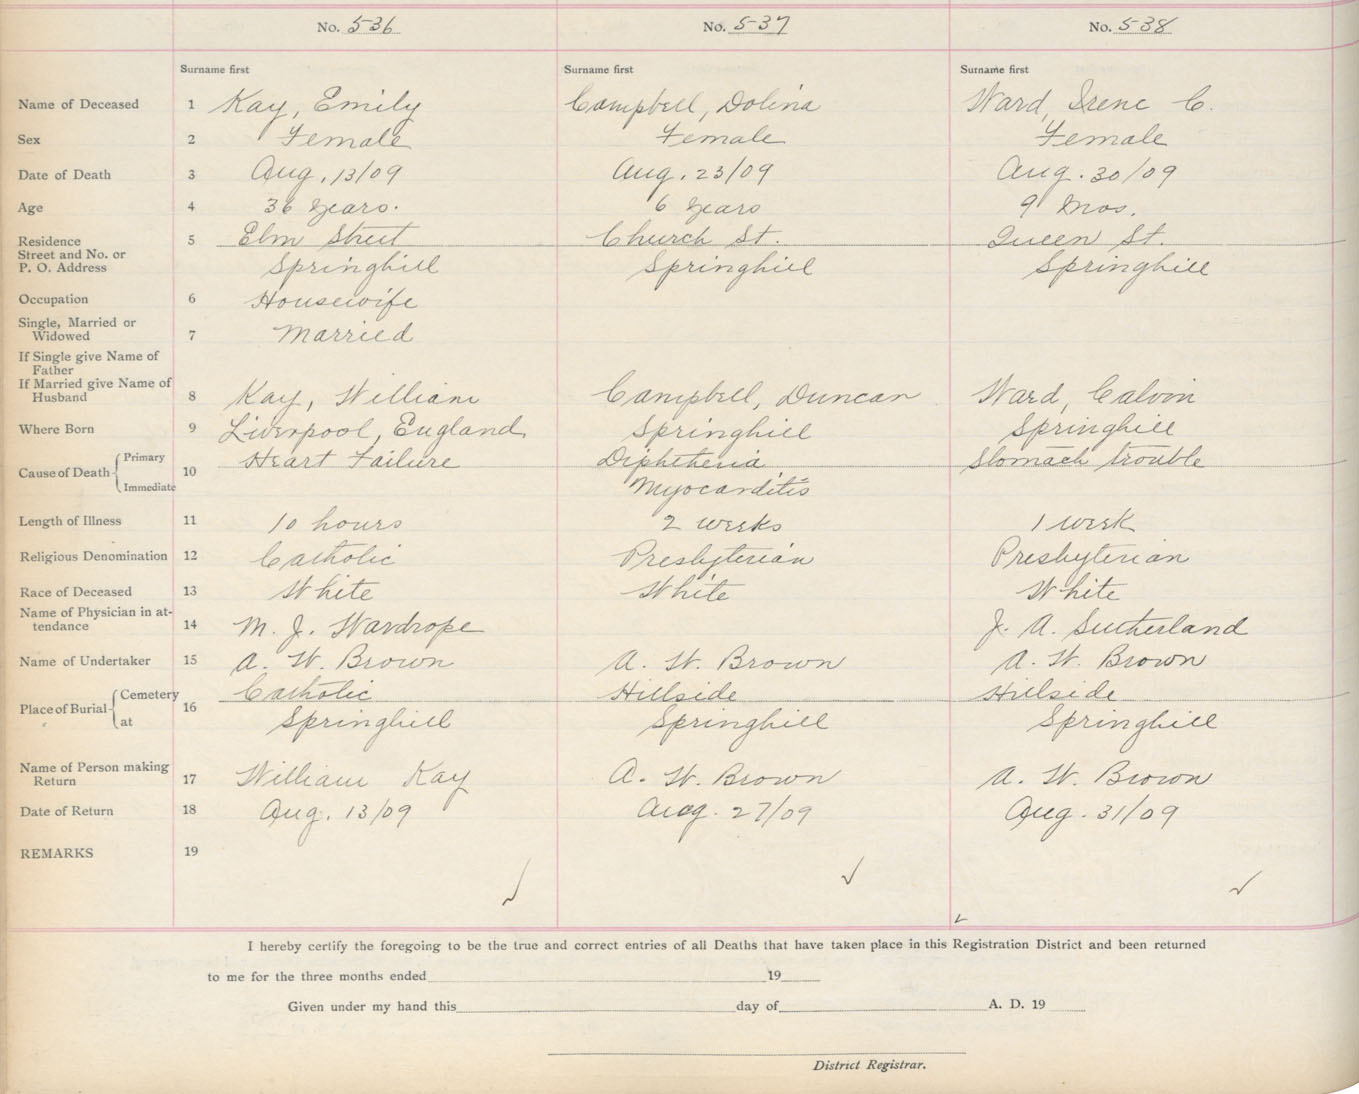 No. 536 No. 537 No. 538
Surname first Surname first Surname first
Name of Deceased 1 Kay, Emily Campbell, Dolina Ward, Irene C.
Sex 2 Female Female Female
Date of Death 3 Aug. 13/09 Aug. 23/09 Aug. 30/09
Age 4 36 Years. 6 Years 9 Mos.
Residence 5 Elm Street Church St. Queen St.
Street and No. or
P. O. Address Springhill Springhill Springhill
Occupation 6 Housewife
Single, Married or
Widowed 7 Married
If Single give Name of
Father
If Married give Name of
Husband 8 Kay, William Campbell, Duncan Ward, Calvin
Where Born 9 Liverpool, England Springhill Springhill
Cause of Death Primary 10 Heart Failure Diphtheria Stomach trouble
Immediate Myocarditis
Length of Illness 11 10 hours 2 weeks 1 week
Religious Denomination 12 Catholic Presbyterian Presbyterian
Race of Deceased 13 White White White
Name of Physician in at-
tendance 14 M. J. Wardrope J. A. Sutherland
Name of Undertaker 15 A. W. Brown A. W. Brown A. W. Brown
Place of Burial Cemetery 16 Catholic Hillside Hillside
at Springhill Springhill Springhill
Name of Person making
Return 17 William Kay A. W. Brown A. W. Brown
Date of Return 18 Aug. 13/09 Aug. 27/09 Aug. 31/09
REMARKS 19
I hereby certify the foregoing to be the true and correct entries of all Deaths that have taken place in this Registration District and been returned
to me for the three months ended 19
Given under my hand this day of A. D. 19
District Registrar.